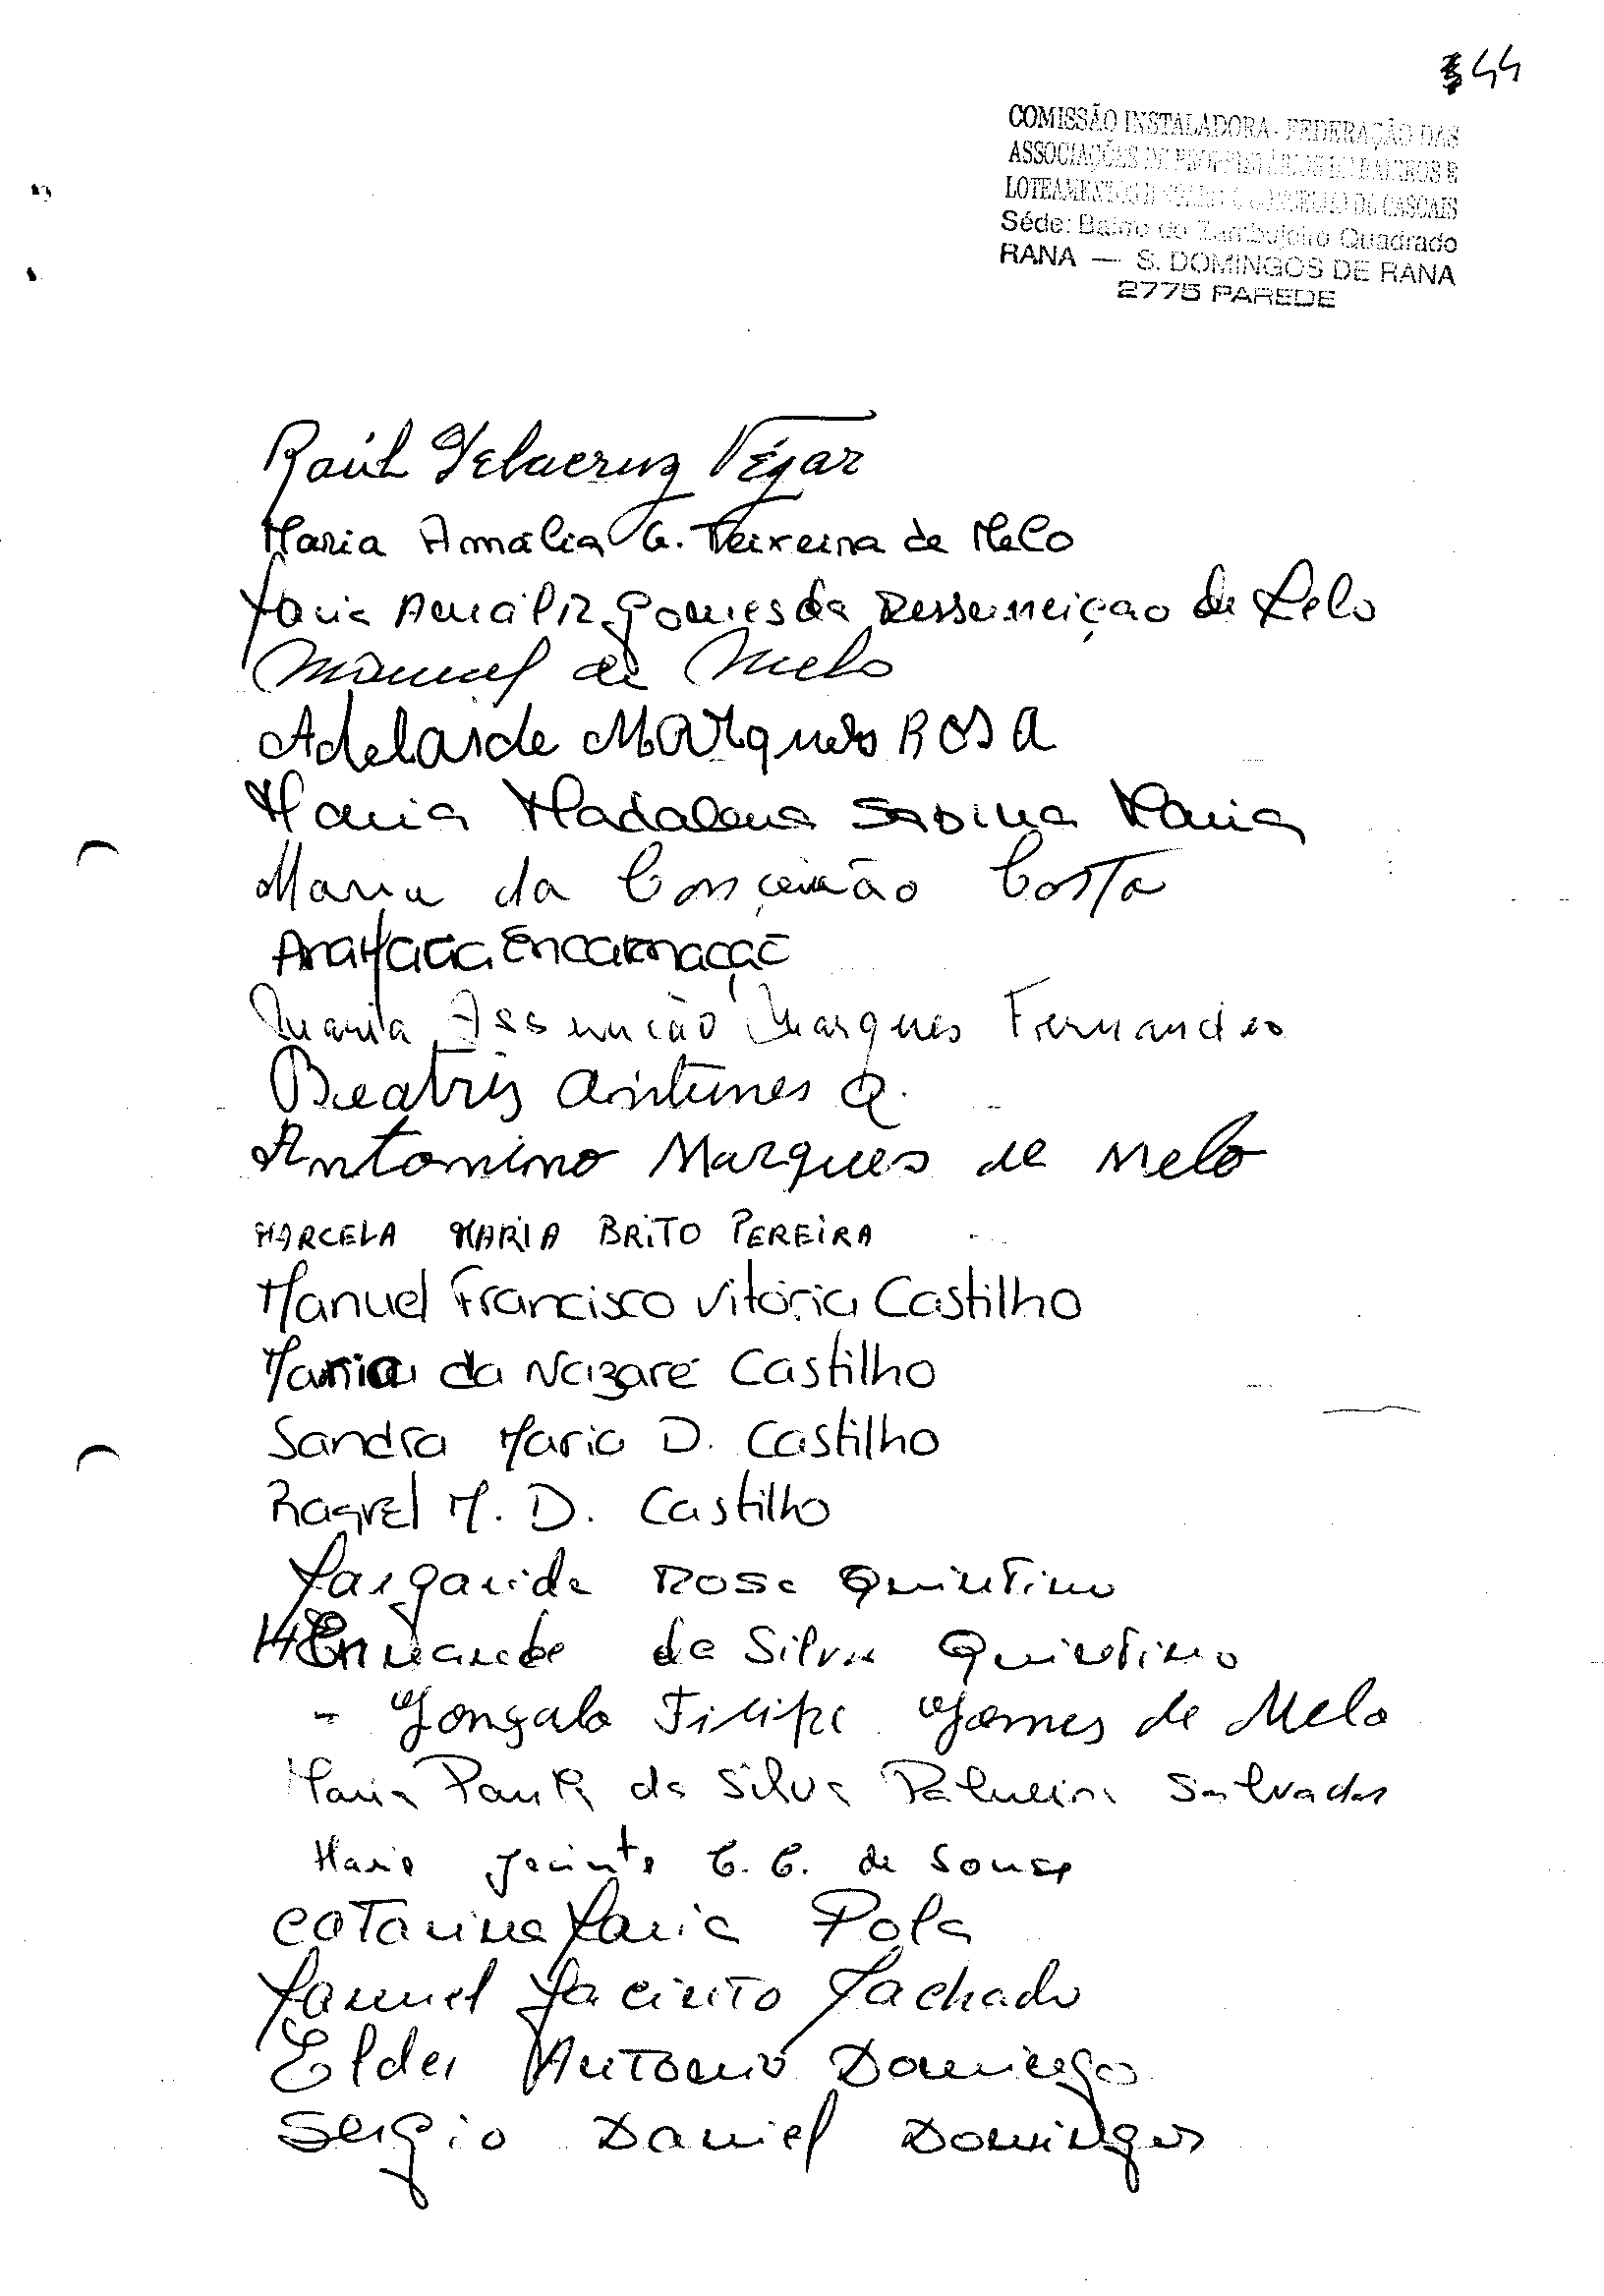 44
COMISSÃO INSTALADORA - FEDERAÇÃO DAS
ASSOCIAÇÕES DE PROPRIETÁRIOS DE BAIRROS E
LOTEAMENTOS DO CONCELHO DE CASCAIS
Séde: Bairro do Zambujeiro Quadrado
RANA — S. DOMINGOS DE RANA
2775 PAREDE
Raúl Velacruz Véjar
Maria Amália G. Teixeira de Melo
Maria Amália Gomes da Ressurreição de Melo
Manuel de Melo
Adelaide Marques ROSA
Maria Madalena Sabina Maria
Maria da Conceição Costa
Ana Maria Encarnação
Maria Assunção Marques Fernandes
Beatris Antunes R.
Antonino Marques de Melo
MARCELA MARIA BRITO PEREIRA
Manuel Francisco Vitória Castilho
Maria da Nazaré Castilho
Sandra Maria D. Castilho
Raquel M. D. Castilho
Margarida Rosa Quintino
da Silva Quintino
- Gonçalo Filipe Gomes de Melo
Maria Paula da Silva Palmeira Salvador
Maria Jacinta C. C. de Sousa
Catarina Maria Pola
Manuel Jacinto Machado
Elder Antonio Domingos
Sergio Daniel Domingos